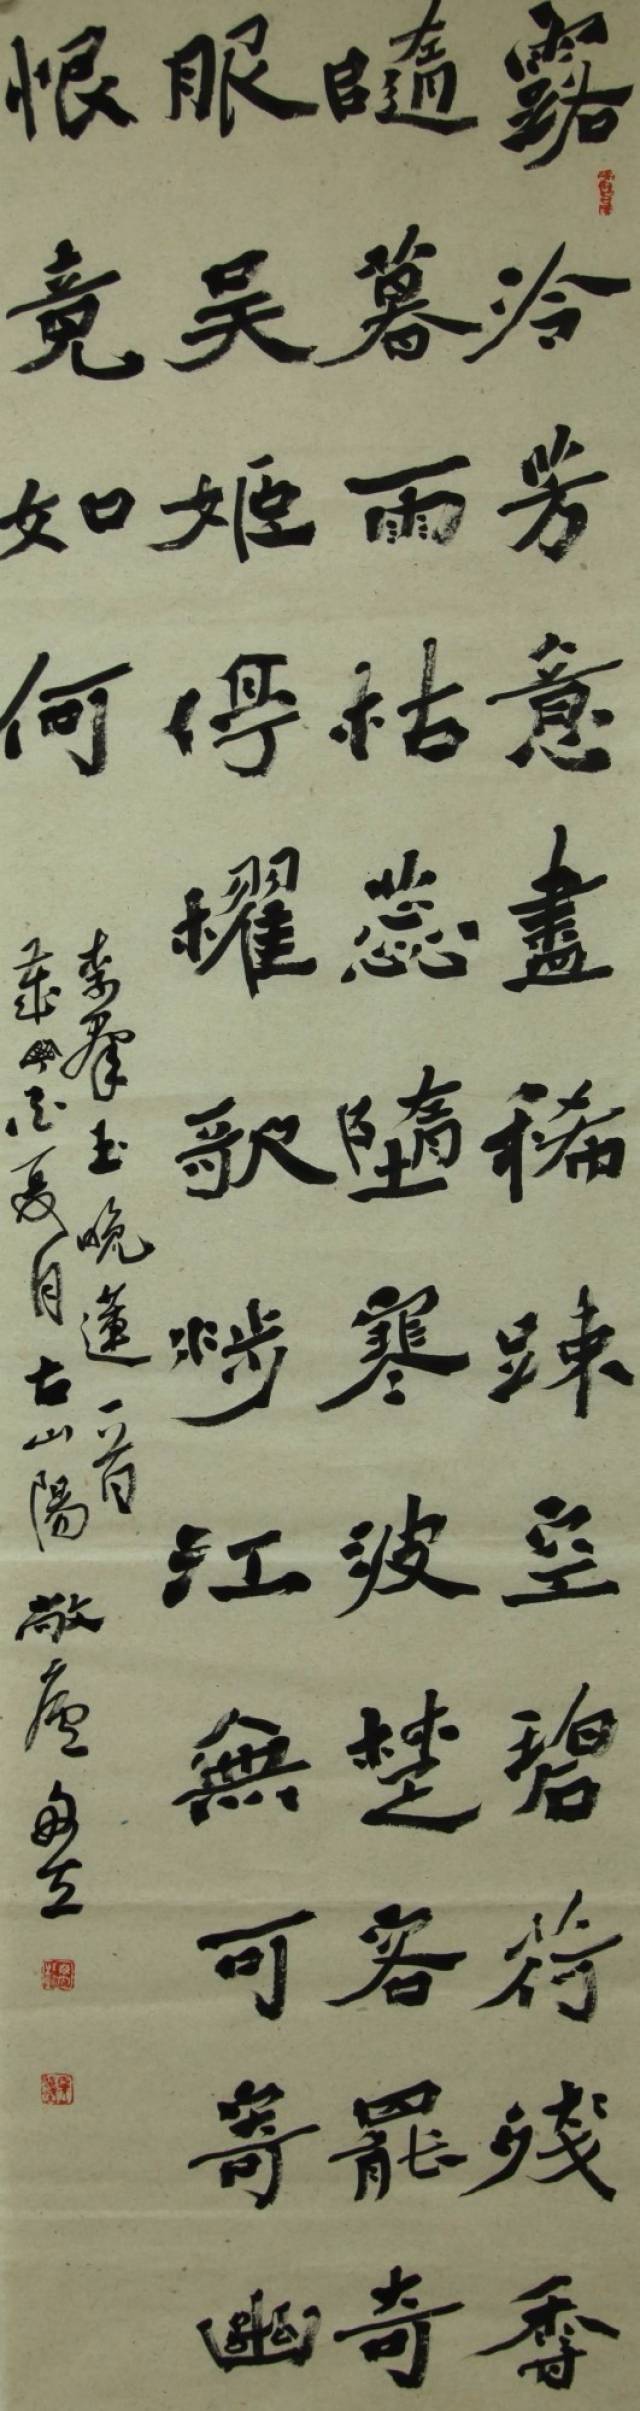 露冷芳意盡稀踈空碧荷殘香
隨暮雨枯蕊墮寒波楚客罷奇
服吴姬停櫂歌涉江無可寄幽
恨竟如何
李羣玉晚蓮一首
歲酉夏月古山陽